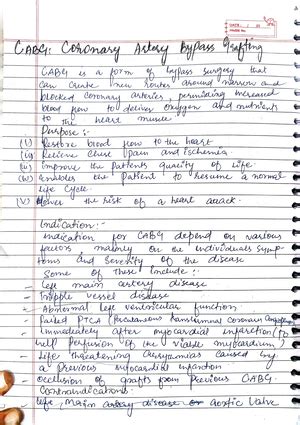 CABG: Coronary Artery Bypass Grafting
CABG is a form of bypass surgery that
can create new routes around narrow and
blocked coronary arteries, permitting increased
blood flow to deliver oxygen and nutrients
to the heart muscle
Purpose :-
(i) Restore blood flow to the heart
(ii) Relieve Chest Pain and ischemia
(iii) improve the Patients quality of life
(iv) enables the Patient to resume a normal
life Cycle.
(v) lower the risk of a heart attack.
Indication :-
indication for CABG depend on various
factors mainly on individuals symp-
toms and Severity of the disease
Some of these include :-
- Left main artery disease
- Tripple vessel disease
- Abnormal left ventricular function
- Failed PTCA (Percutaneous transluminal coronary
- immediately after myocardial infarction (to
help Perfusion of the viable myocardium)
- Life threatening caused by
a Previous myocardial infarction
- occlusion of grafts from Previous CABG.
Contraindications
- left main artery disease aortic valve